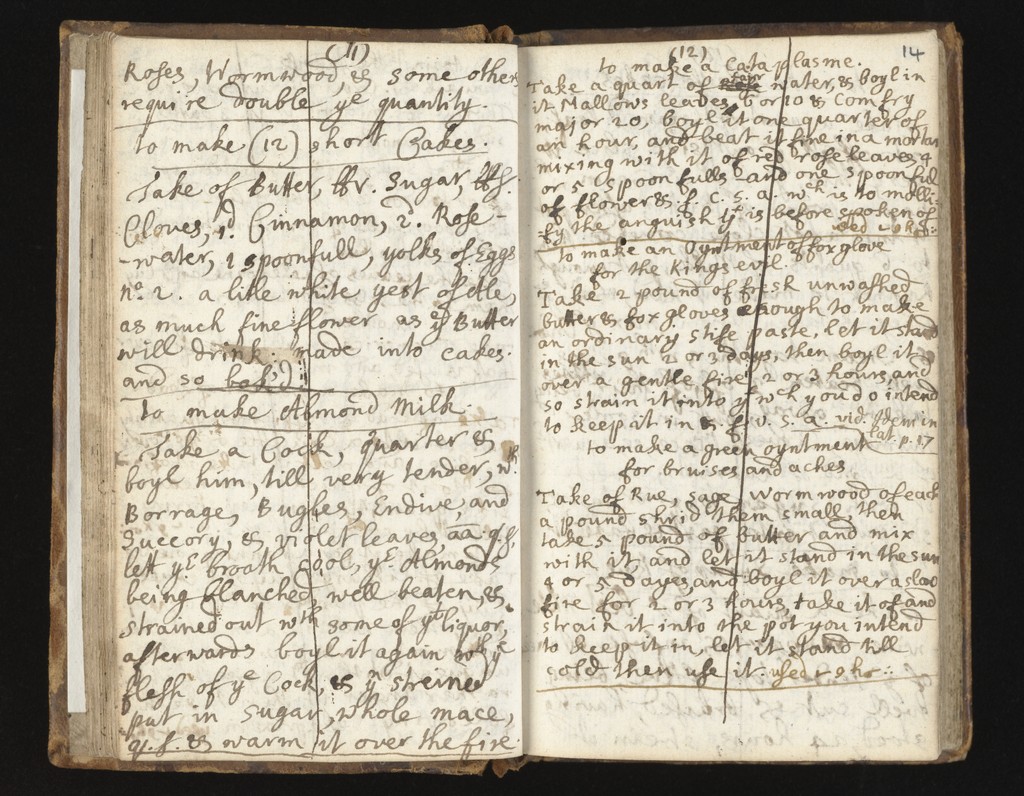 (11)
Roses, Wormwood, & some other
require double ye quantity.
to make (12) short Cakes.
Take of Butter, ℔r. Sugar, ℔ſ.
Cloves, 1d. Cinnamon, 2d. Rose-
-water, 1 spoonfull, yolks of Eggs
No 2. a litle white yest of Ale,
as much fine flower as ye Butter
will drink. made into cakes.
and so bak'd.
to make Almond Milk.
Take a Cock, quarter &
boyl him, till very tender, wth
Borrage, Bugles, Endive, and
Succory, & violet leaves, aa. q.ſ.
lett ye broath cool, ye Almonds
being blanched, well beaten, &
strained out wth some of yt liquor,
afterwards boyl it again wth ye
flesh of ye Cock, & yn streined
put in sugar, whole mace,
q. ſ. & warm it over the fire.
(12)
14
to make a Cataplasme.
Take a quart of water, & boyl in
it Mallows leaves 6 or 10 & Comfry
major 20, boyl it one quarter of
an hour, and beat it fine in a mortar
mixing with it of red rose leaves 4
or 5 spoon fulls and one spoonful
of flower & f. C. s. a. wch is to molli-
-fy the anguish yt is before spoken of
used
to make an Oyntment of foxglove
for the Kings evil.
Take 2 pound of fresh unwashed
butter & fox gloves enough to make
an ordinary stife paste, let it stand
in the sun 2 or 3 days, then boyl it
over a gentle fire 2 or 3 hours, and
so strain it into yt wch you do intend
to keep it in & f. U. s. a. vid. Idem in
Lat. p. 17
to make a green oyntment
for bruises and aches
Take of Rue, sage, wormwood of each
a pound shrid them small, then
take 5 pound of butter and mix
with it, and let it stand in the sun
4 or 5 dayes, and boyl it over a slow
fire for 2 or 3 hours, take it of and
strain it into the pot you intend
to keep it in, let it stand till
cold then use it. used